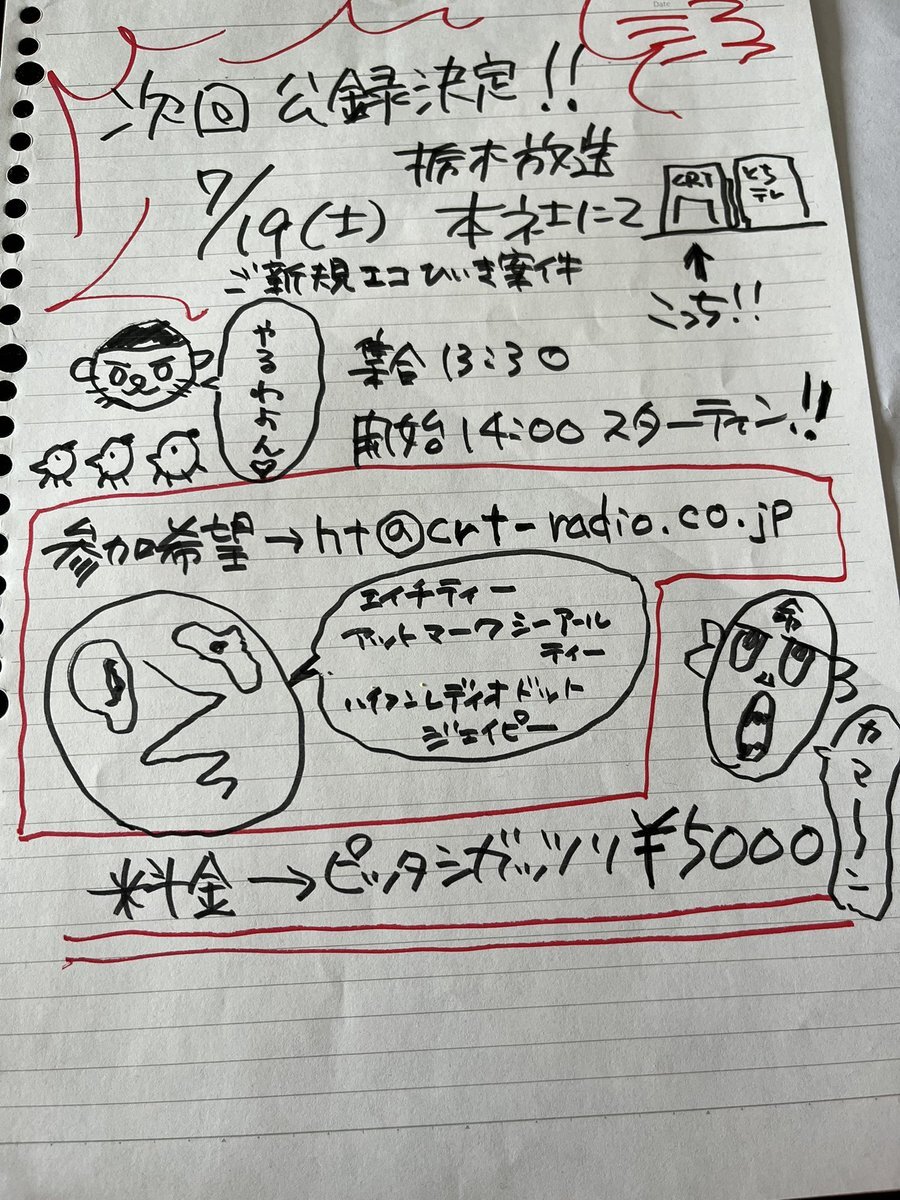 Date
次回 公録決定!!
栃木放送
7/19(土) 本社にて
CRT
とち
テレ
↑
こっち!!
ご新規エコひいき案件
やるわよん♡
集合 13:30
開始 14:00 スターティン!!
参加希望→ht@crt-radio.co.jp
エイチティー
アットマーク シーアール
ティー
ハイフンレディオドット
ジェイピー
命
カマ〜ン
料金→ピッタシガッツリ¥5000